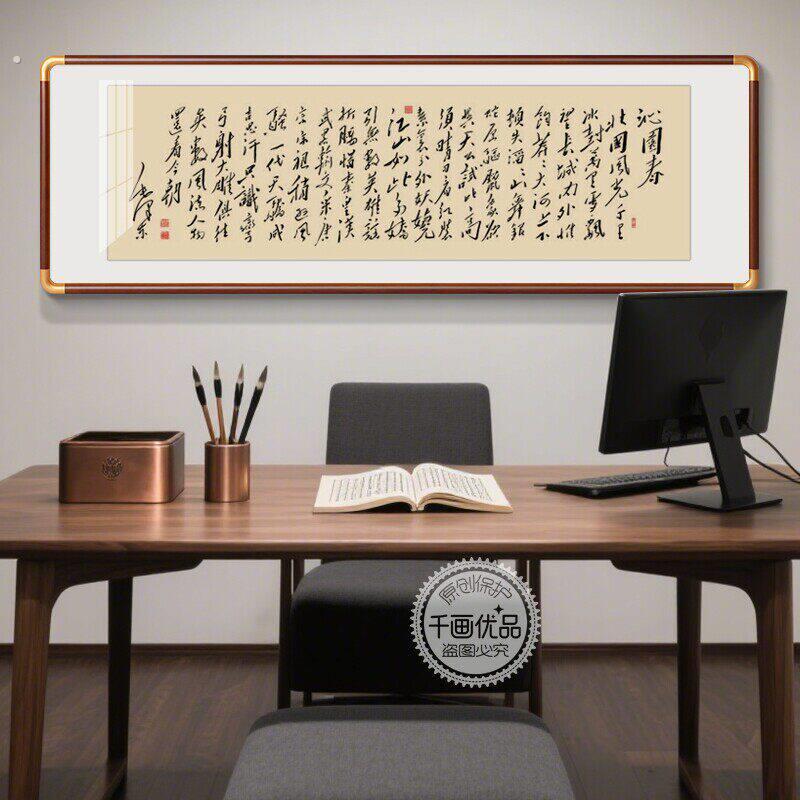 沁園春
北國風光千里
冰封萬里雪飄
望长城内外惟
餘莽莽大河上下
頓失滔滔山舞銀
蛇原驅臘象欲
與天公試比高
須晴日看红装
素裹分外妖嬈
江山如此多嬌
引無數英雄競
折腰惜秦皇漢
武略輸文采唐
宗宋祖稍遜風
騷一代天驕成
吉思汗只識彎
弓射大雕俱往
矣數風流人物
還看今朝
毛泽东
原创保护
千画优品
盗图必究